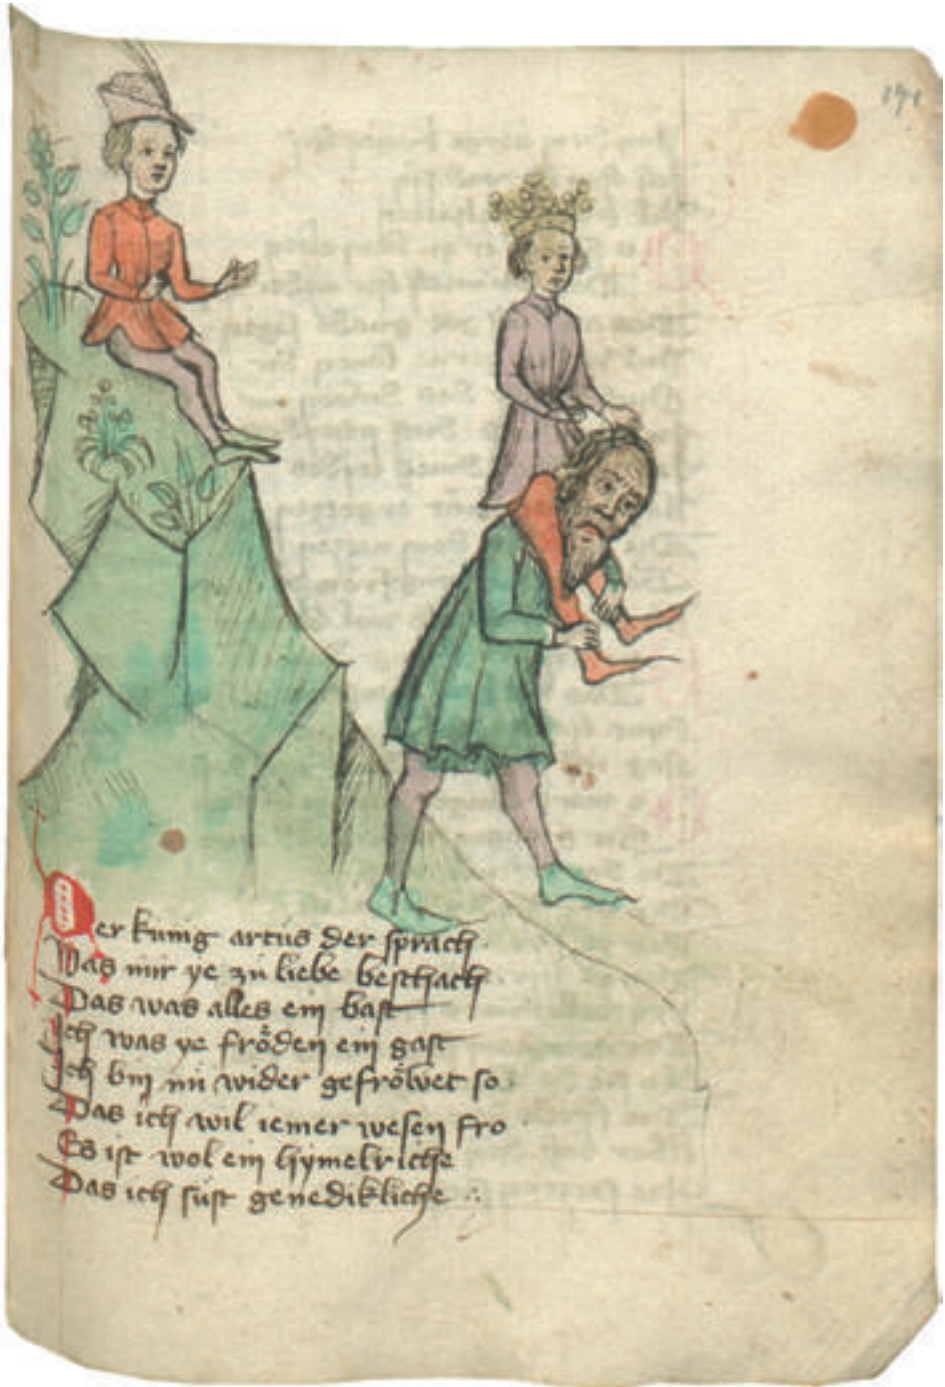 191
Der kunig artus der sprach
Was mir ye zu liebe beschach
Das was alles ein bast
Ich was ye fröden ein gast
Ich bin nu wider gefröwet so
Das ich wil iemer wesen fro
Es ist wol ein hymelriche
Das ich sust genedikliche